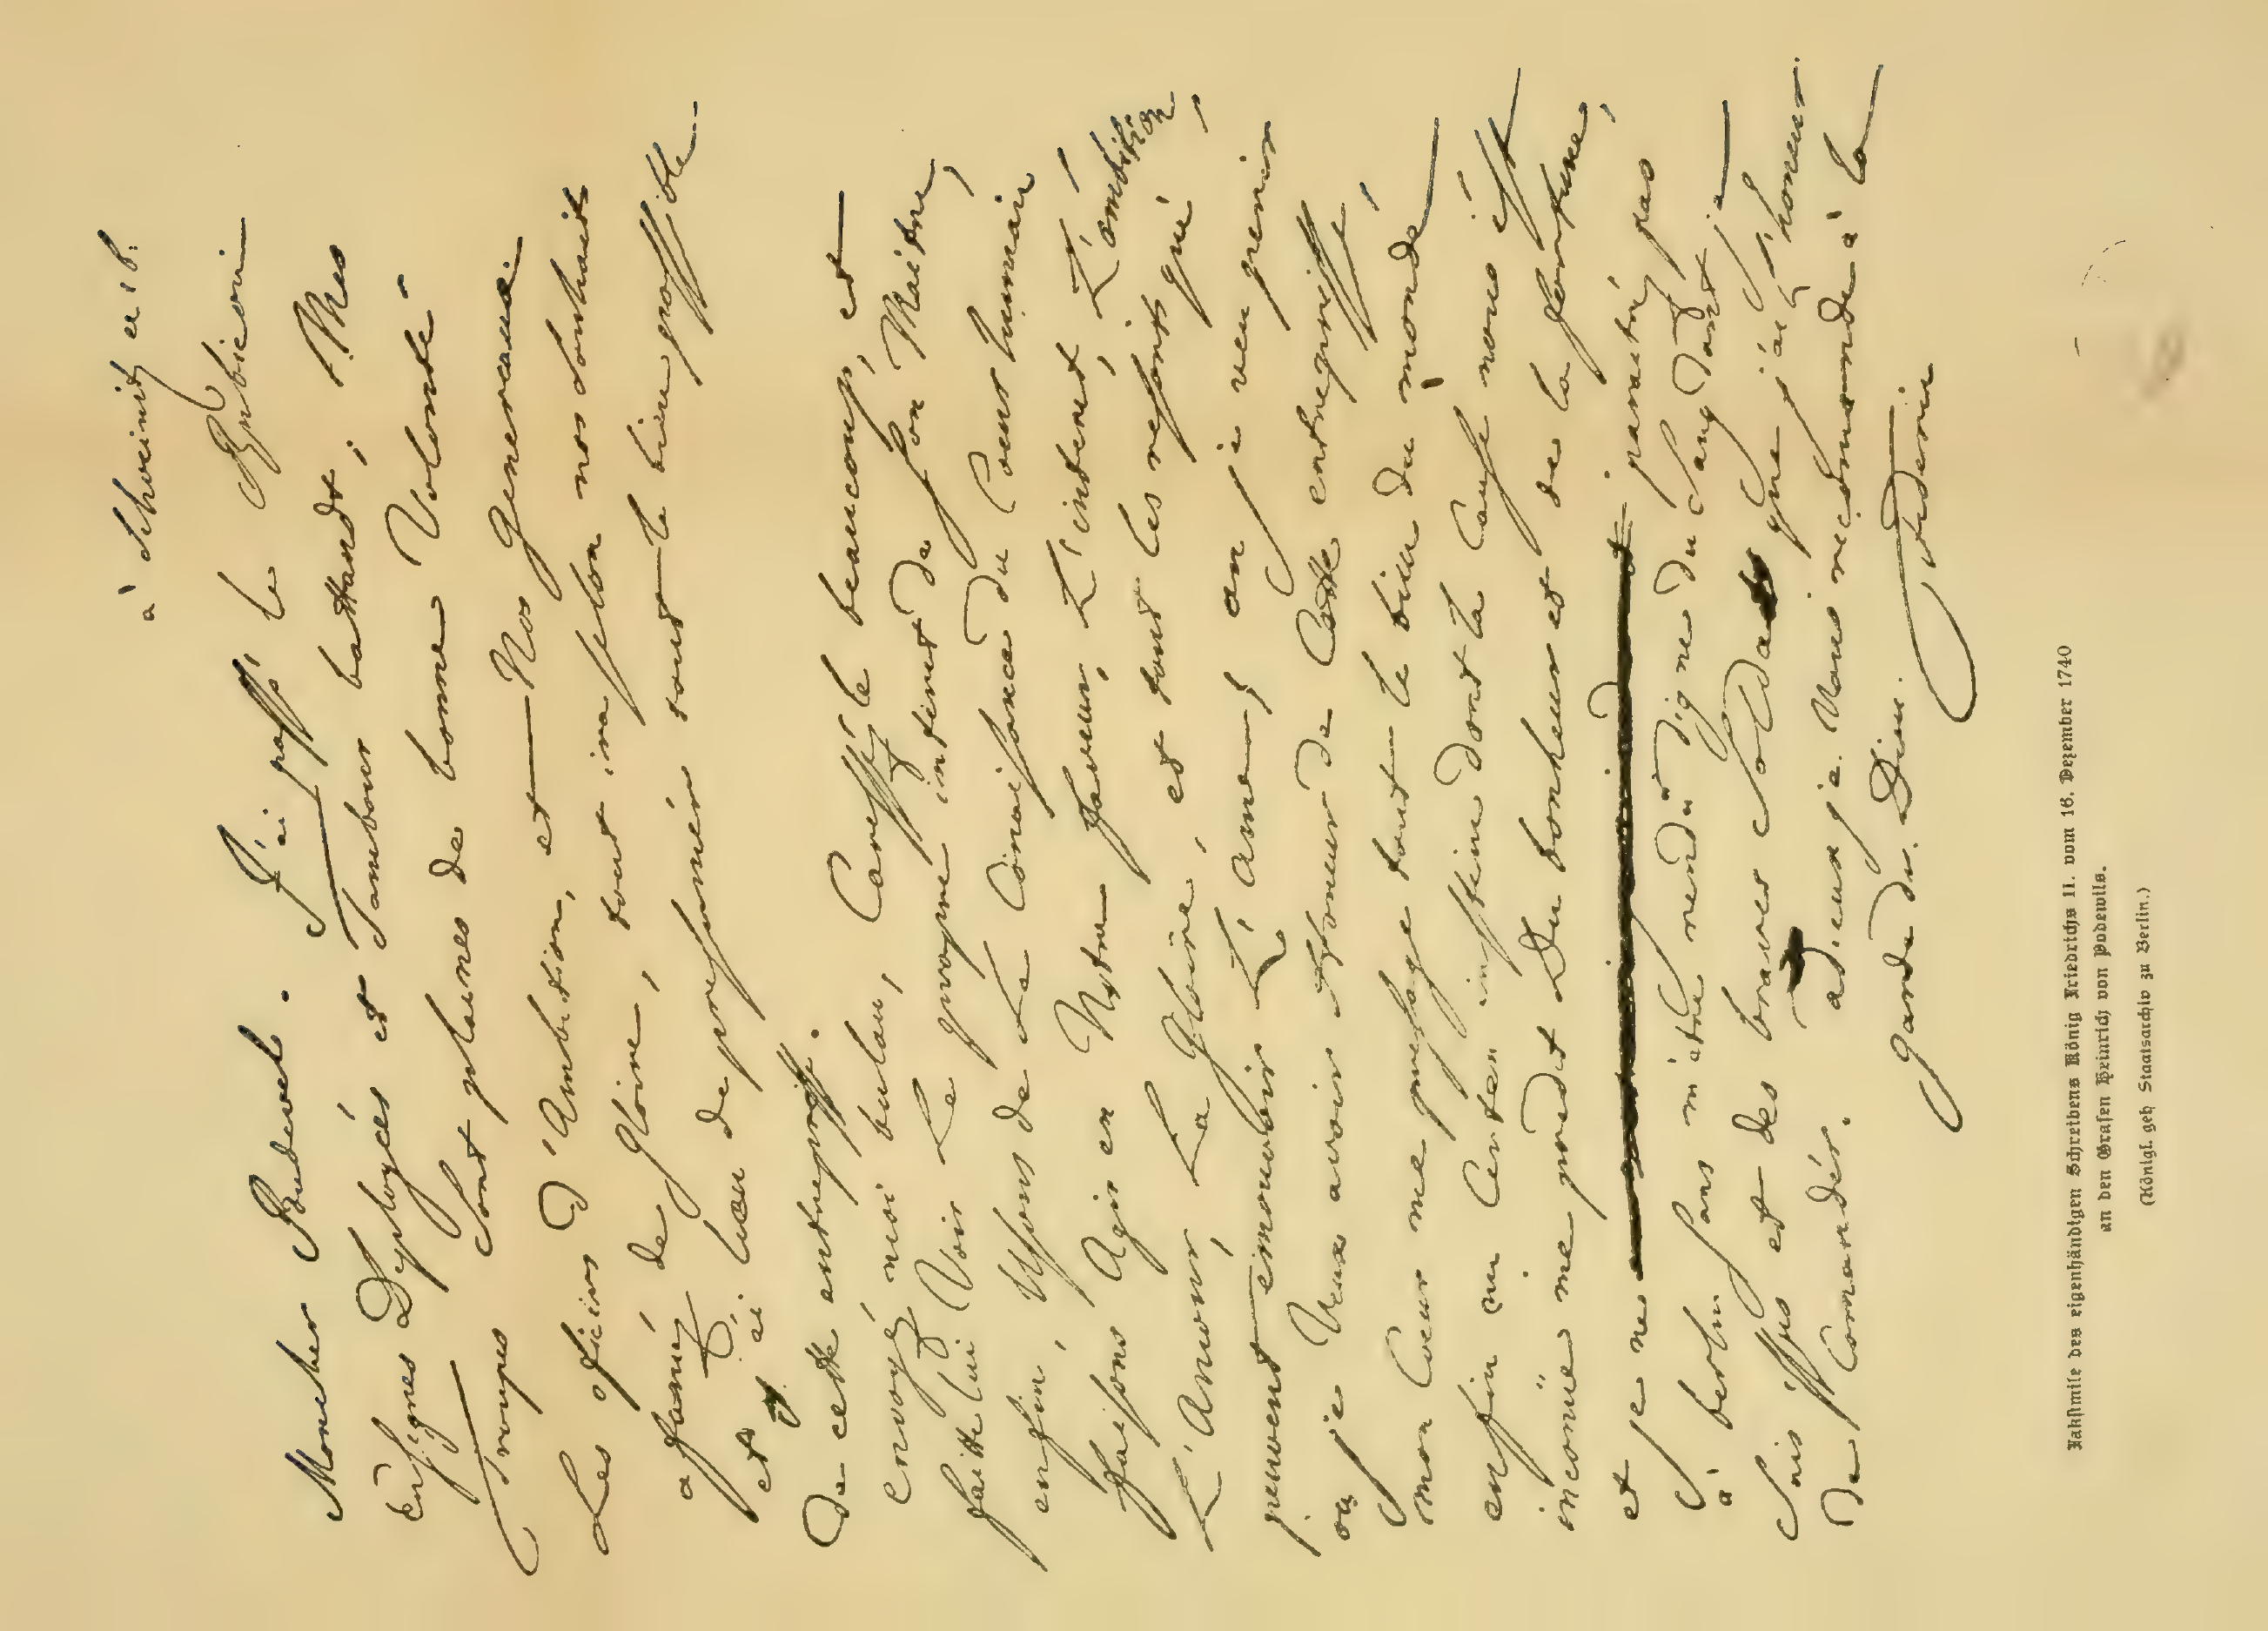 à Schweinitz ce 16.
Moncher Podewil. J'ai passé le Rubicon
enseignes Deployées et Tambour battandt; Mes
Troupes sont plaines de bonne Volonté
Les oficiers d'Ambition, et Nos Generaux
afamé de Gloire, tout ira selon nos souhaits
et j'ai lieu de presumér tout le bien possible
de cette entreprisse.
envoyé moi bulau, Caressé le beaucoup, et
faitte lui Voir le propre interet de son Maitre,
enfin, Usons de La Conaissance du Coeur humain
faisons Agir en Notre faveur, L'interet, L'ambition,
L'Amour, La Gloire, et tout les resorts qui
peuvent émouvoir L'ame,
ou je Veux avoir Honeur de Cette entreprisse,
mon Coeur me presage tout le bien du monde
enfin un Certein instein dont la Cause nous est
inconüe me predit Du bonheur et de la fortune,
et je ne paraitré pas
à berlin sans m'etre rendü digne du Sang dont je
suis issus et des braves Soldats que j'ai l'honeur
de Comandér. adieux je Vous recomande à la
garde de Dieu. Federic
Faksimile des eigenhändigen Schreibens König Friedrichs II. vom 16. Dezember 1740
an den Grafen Heinrich von Podewils.
(Königl. geh Staatsarchiv zu Berlin.)